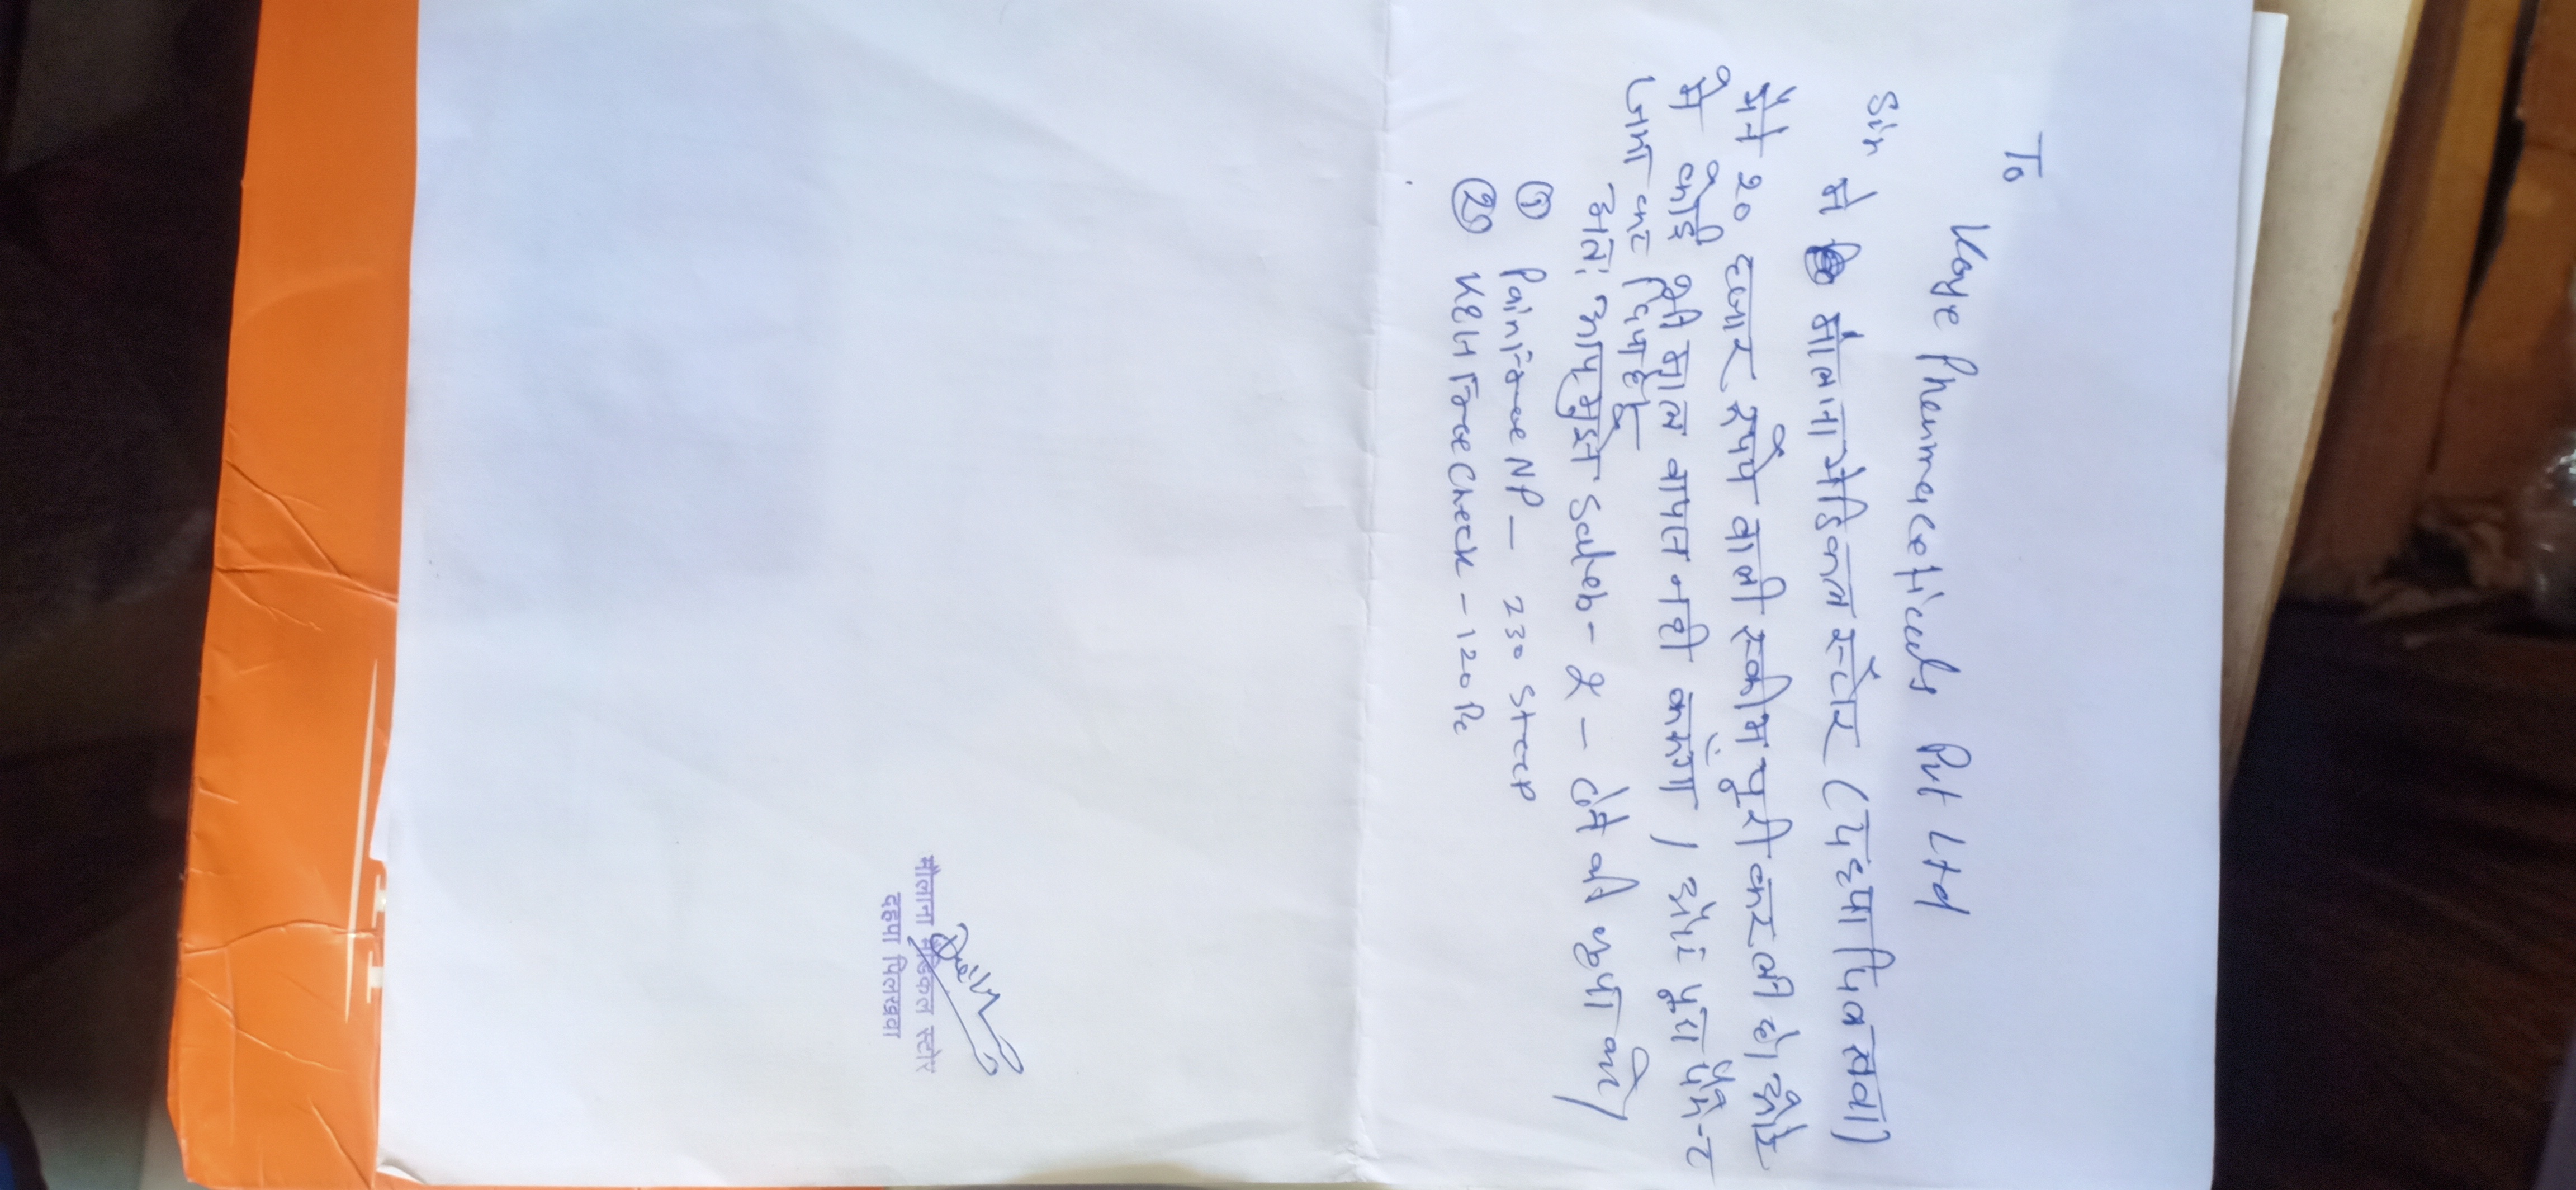 To
Kaye Pharmaceuticals Pvt Ltd
Sir मै मौलाना मेडिकल स्टोर (दहपा पिलखवा)
मैने 20 हजार रूपये वाली स्कीम पूरी कर ली है। और
मै कोई भी माल वापस नही करूंगा। और पूरा पैमेन्ट
जमा कर दिया है
अतः आप मुझे Scheb - 2 - देने की कृपा करे।
① Painforce NP - 230 Strip
② Force Check - 120 Pc
मौलाना मेडिकल स्टोर
दहपा पिलखवा